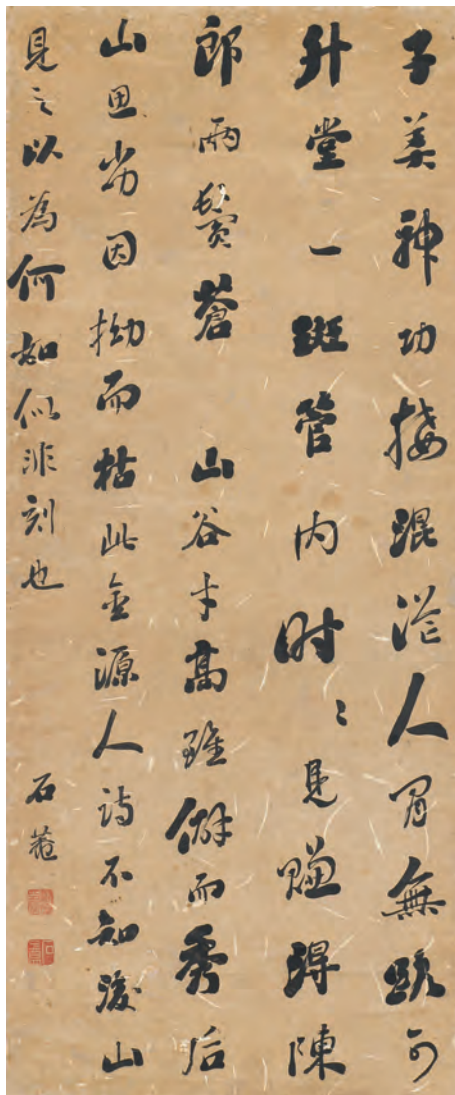 子美神功接混茫人間無路可
升堂一斑管内时〻見賺得陳
郎兩鬢蒼　山谷才高雖僻而秀后
山思劣因拗而枯此金源人詩不知後山
見之以為何如似非刻也
石菴